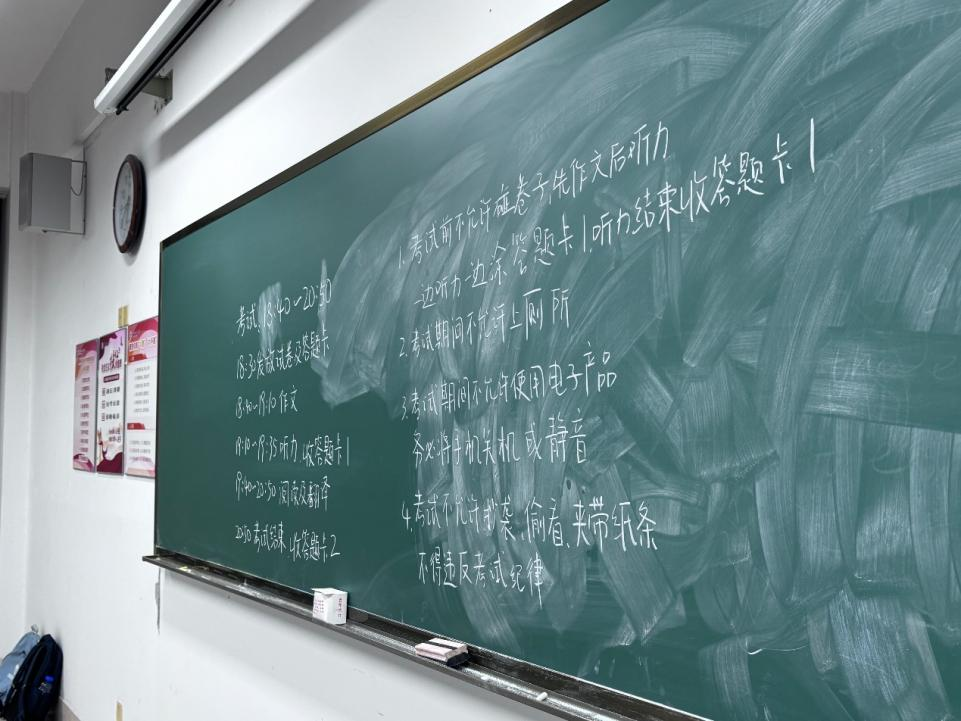 考试:18:40~20:50
18:30发放试卷及答题卡
18:40~19:10 作文
19:10~19:35 听力,收答题卡1
19:40~20:50 阅读及翻译
20:50 考试结束,收答题卡2
1.考试前不允许碰卷子,先作文后听力
一边听力一边涂答题卡1,听力结束收答题卡1
2.考试期间不允许上厕所
3.考试期间不允许使用电子产品
务必将手机关机或静音
4.考试不允许抄袭、偷看、夹带纸条
不得违反考试纪律